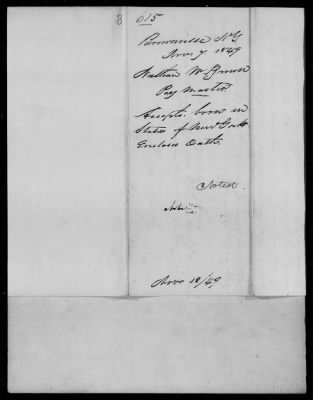 B 615
Brownville N.Y.
Nov. 7 1849
Nathan W. Brown
Pay Master
Accepts. born in
State of New York
Encloses Oath.
Noted.
Nov 12/49